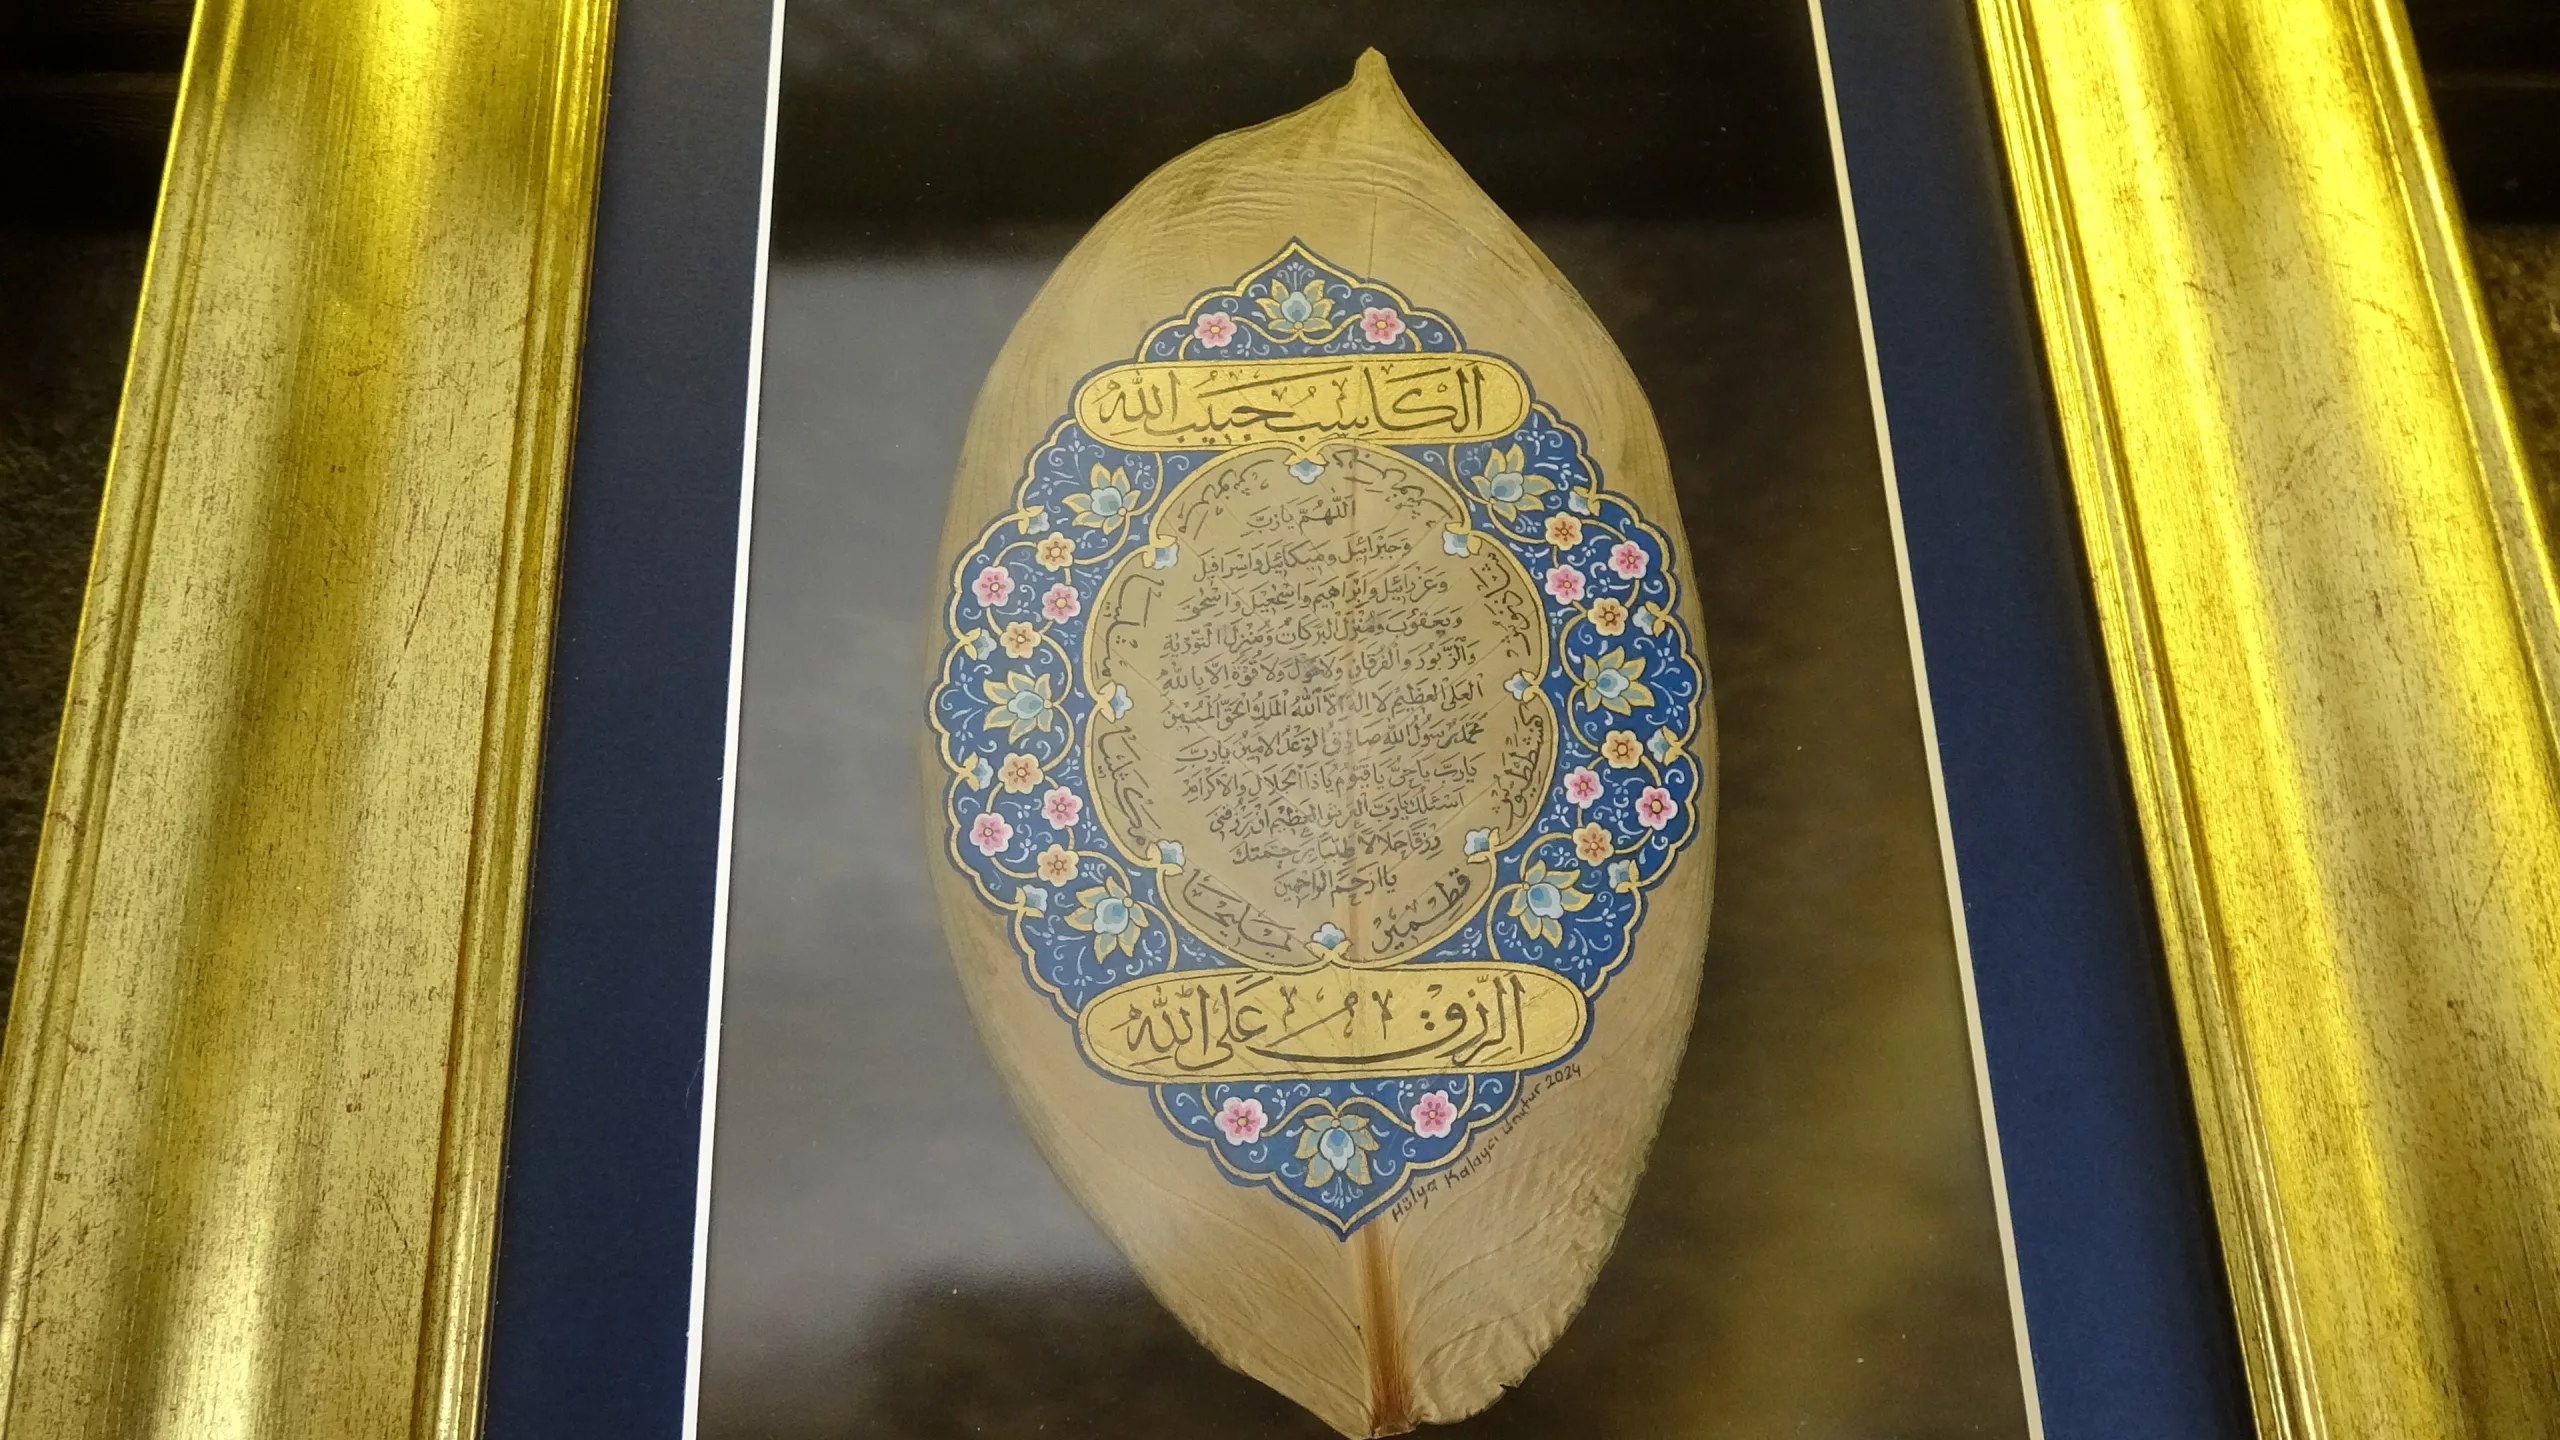 الكاسب حبيب الله
اللهم يا رب
وجبرائيل وميكائيل واسرافيل
وعزرائيل وابراهيم واسمعيل واسحق
ويعقوب ومنزل البركات ومنزل التورية
والزبور والفرقان ولا حول ولا قوة الا بالله
العلى العظيم لا اله الا الله الملك الحق المبين
محمد رسول الله صادق الوعد الامين يا رب
يا رب يا حى يا قيوم يا ذا الجلال والاكرام
اسئلك يا رب العرش العظيم ان ترزقنى
رزقا حلالا طيبا برحمتك
يا ارحم الراحمين
مرنوش
دبرنوش
شاذنوش
كفشططيوش
قطمير
يمليخا
مكثلينا
مثلينا
الرزق على الله
Hülya Kalaycı Unutur 2024